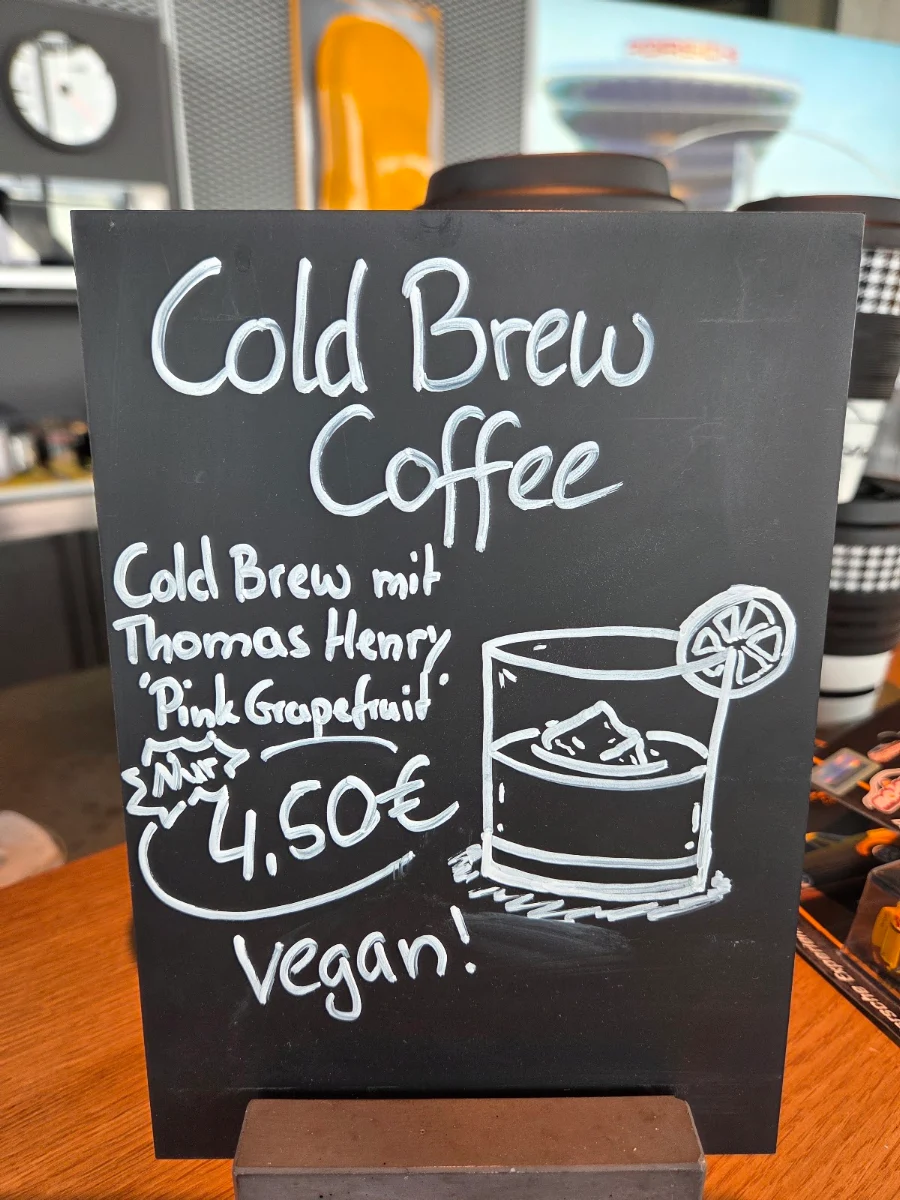 Cold Brew
Coffee
Cold Brew mit
Thomas Henry
'Pink Grapefruit'
Nur
4,50€
vegan!